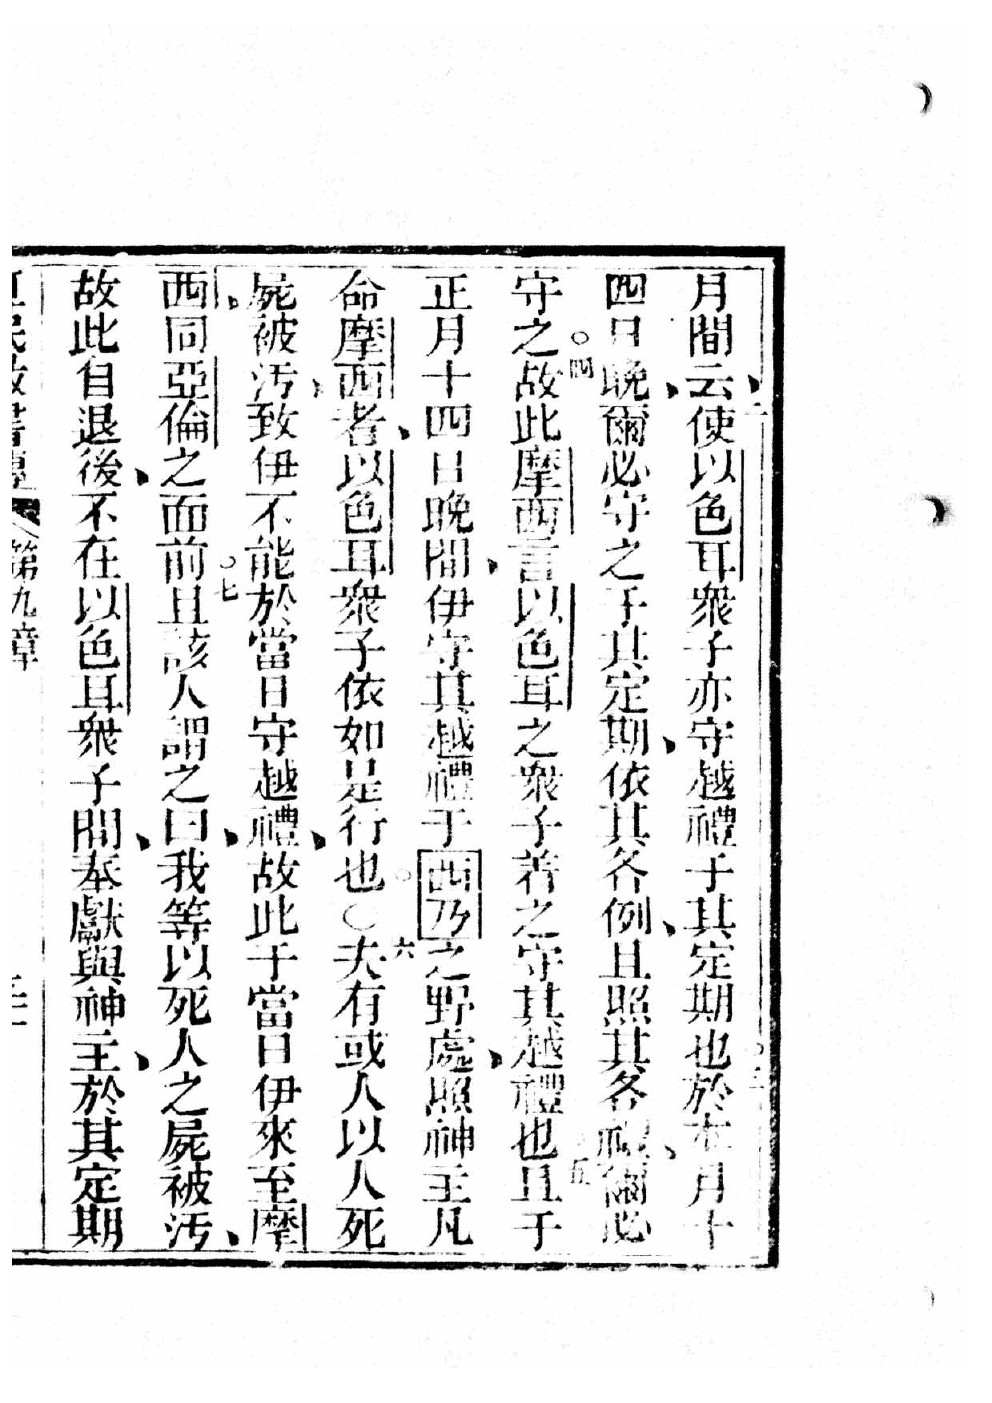 月間云使以色耳衆子亦守越禮于其定期也於本月十
四日晚爾必守之于其定期依其各例且照其各禮爾必
守之故此摩西言以色耳之衆子着之守其越禮也且于
正月十四日晚間伊守其越禮于西乃之野處照神主凡
命摩西者以色耳衆子依如是行也○夫有或人以人死
屍被汚致伊不能於當日守越禮故此于當日伊來至摩
西同亞倫之面前且該人謂之曰我等以死人之屍被汚
故此自退後不在以色耳衆子間奉獻與神主於其定期
二
三
四
五
六
七
第九章